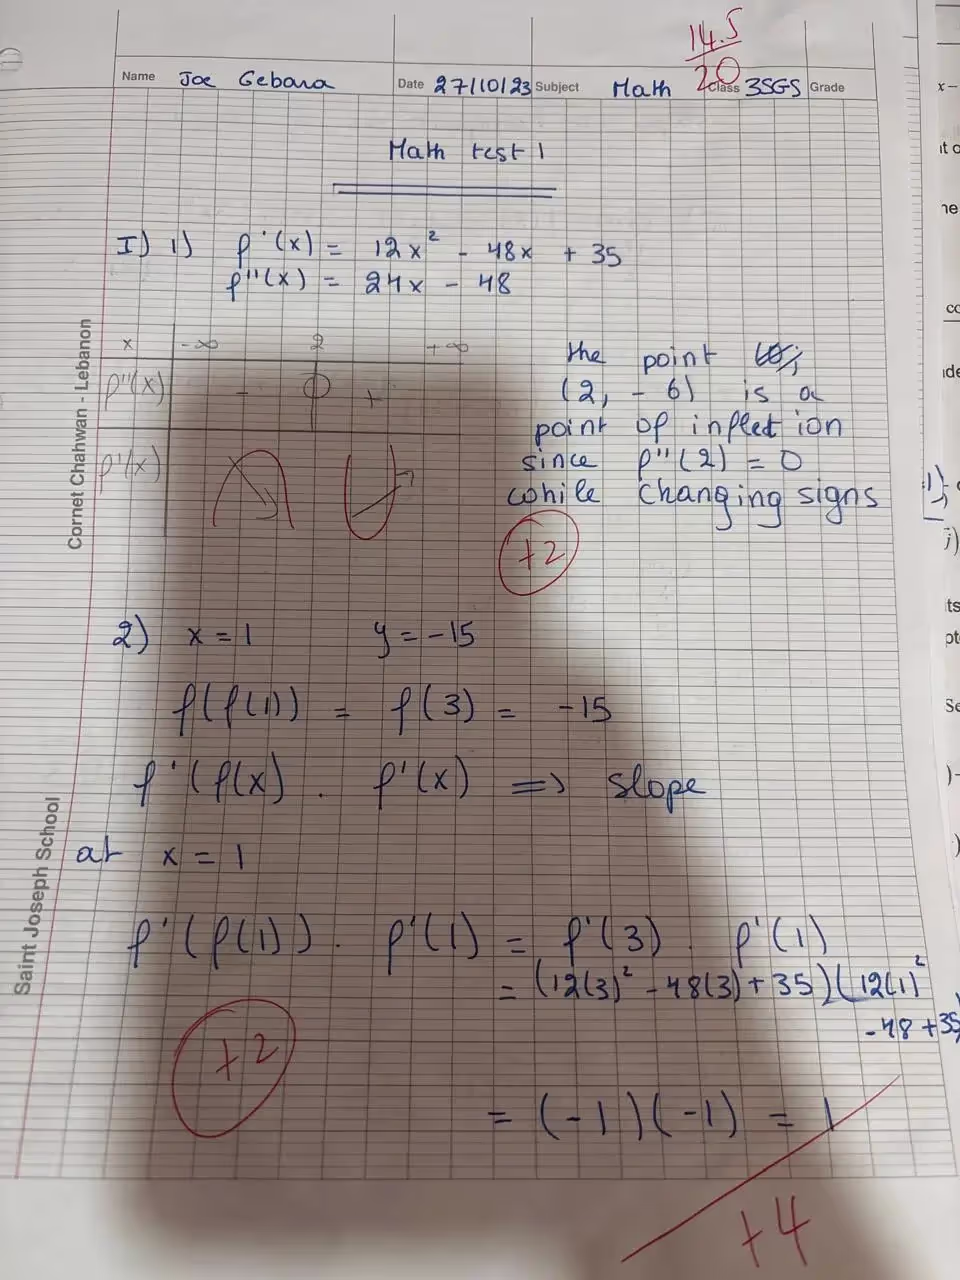 14.5
20
Name Joe Gebara Date 27/10/23 Subject Math Class 3SGS Grade
Math test 1
I) 1) f'(x) = 12x² - 48x + 35
f''(x) = 24x - 48
x -∞ 2 +∞
f''(x) - 0 +
f'(x)
the point
(2, -6) is a
point of inflection
since f''(2) = 0
while changing signs
+2
2) x = 1 y = -15
f(f(1)) = f(3) = -15
f'(f(x) . f'(x) => slope
at x = 1
f'(f(1)) . f'(1) = f'(3) . f'(1)
= (12(3)² - 48(3) + 35)(12(1)²
- 48 + 35)
+2
= (-1)(-1) = 1
+4
Cornet Chahwan - Lebanon
Saint Joseph School